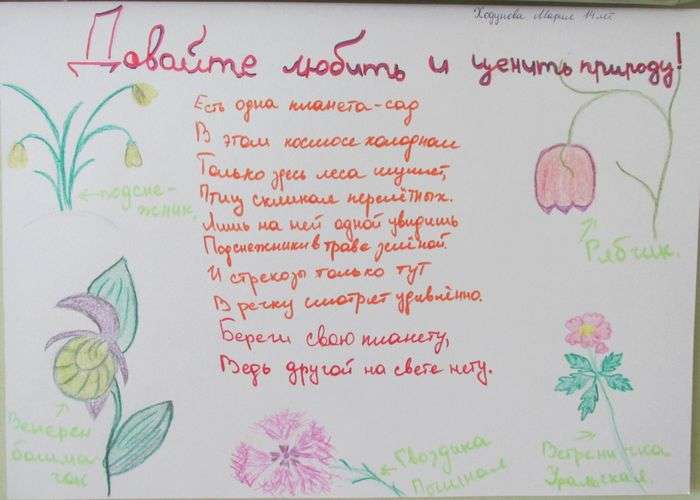 Ходунова Мария 14 лет
Давайте любить и ценить природу!
Есть одна планета-сад
В этом космосе холодном
Только здесь леса шумят,
Птиц скликая перелётных.
Лишь на ней одной увидишь
Подснежники в траве зелёной.
И стрекозы только тут
В речку смотрят удивлённо.
Береги свою планету,
Ведь другой на свете нету.
подсне-
жник.
Рябчик.
Венерен
башма
чок
Гвоздика
Пышная
Ветреничка
Уральская.